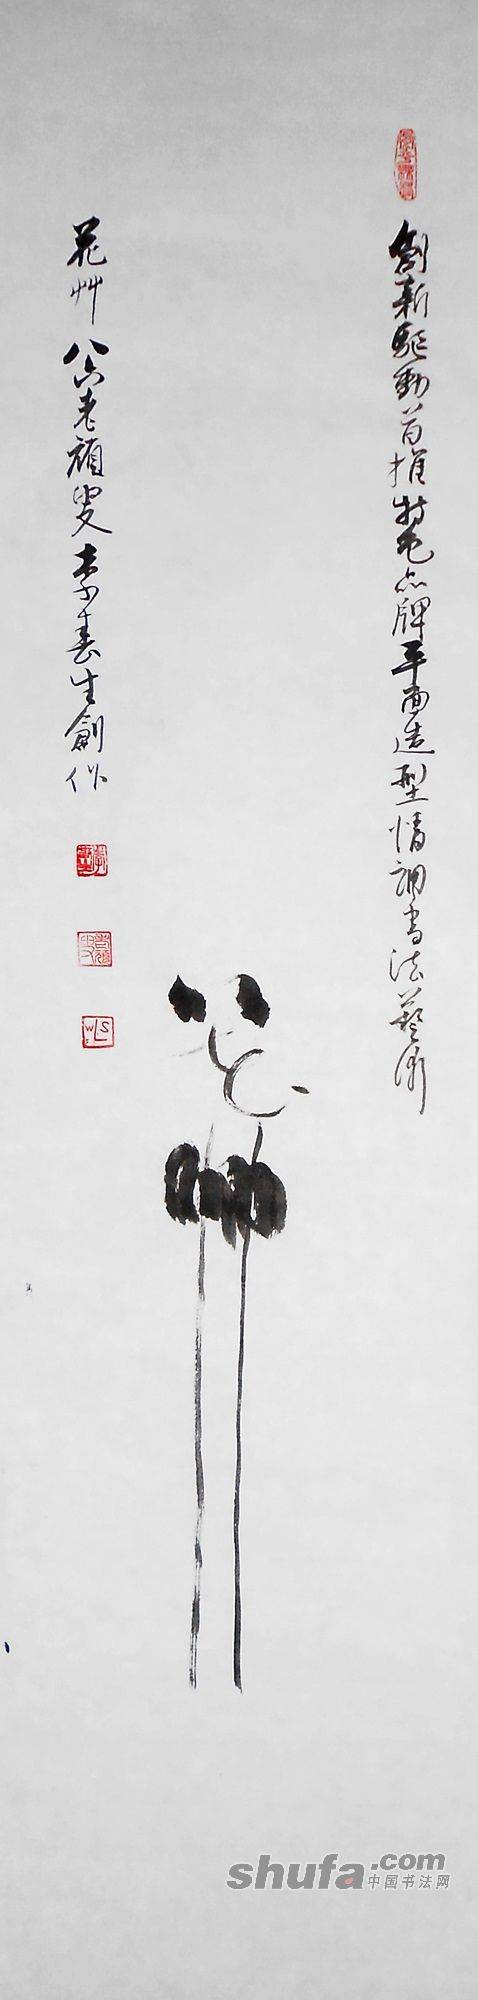 創新驅動首推特色品牌平面造型情調書法藝術
花艸
花艸八六老頑叟李春生創作
shufa.com
中国书法网